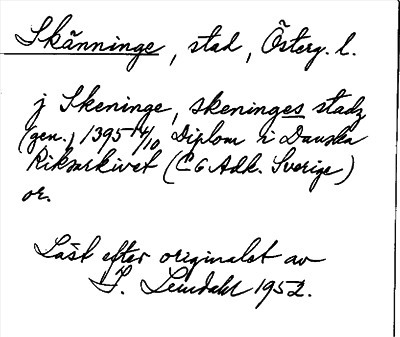 Skänninge, stad, Österg. l.
j Skeninge, skeninges stadz
(gen.) 1395 4/10 Diplom i Danska
Riksarkivet (C 6 Adk. Sverige)
or.
Läst efter originalet av
S. Lundahl 1952.